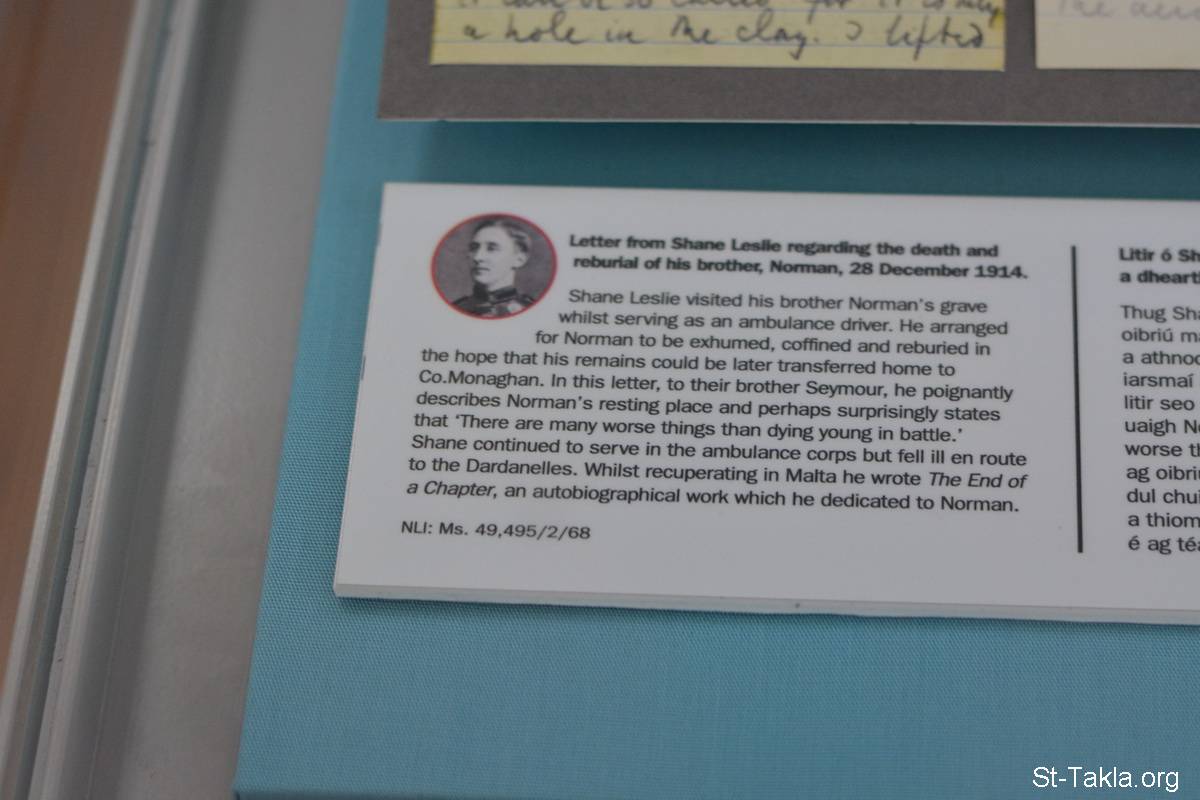 a hole in the clay. I lifted
Letter from Shane Leslie regarding the death and
reburial of his brother, Norman, 28 December 1914.
Shane Leslie visited his brother Norman's grave
whilst serving as an ambulance driver. He arranged
for Norman to be exhumed, coffined and reburied in
the hope that his remains could be later transferred home to
Co.Monaghan. In this letter, to their brother Seymour, he poignantly
describes Norman's resting place and perhaps surprisingly states
that 'There are many worse things than dying young in battle.'
Shane continued to serve in the ambulance corps but fell ill en route
to the Dardanelles. Whilst recuperating in Malta he wrote The End of
a Chapter, an autobiographical work which he dedicated to Norman.
NLI: Ms. 49,495/2/68
Litir ó Sh
a dheart
Thug Sha
oibriú m
a athno
iarsmaí
litir seo
uaigh N
worse t
ag oibri
dul chui
a thiom
é ag té
St-Takla.org